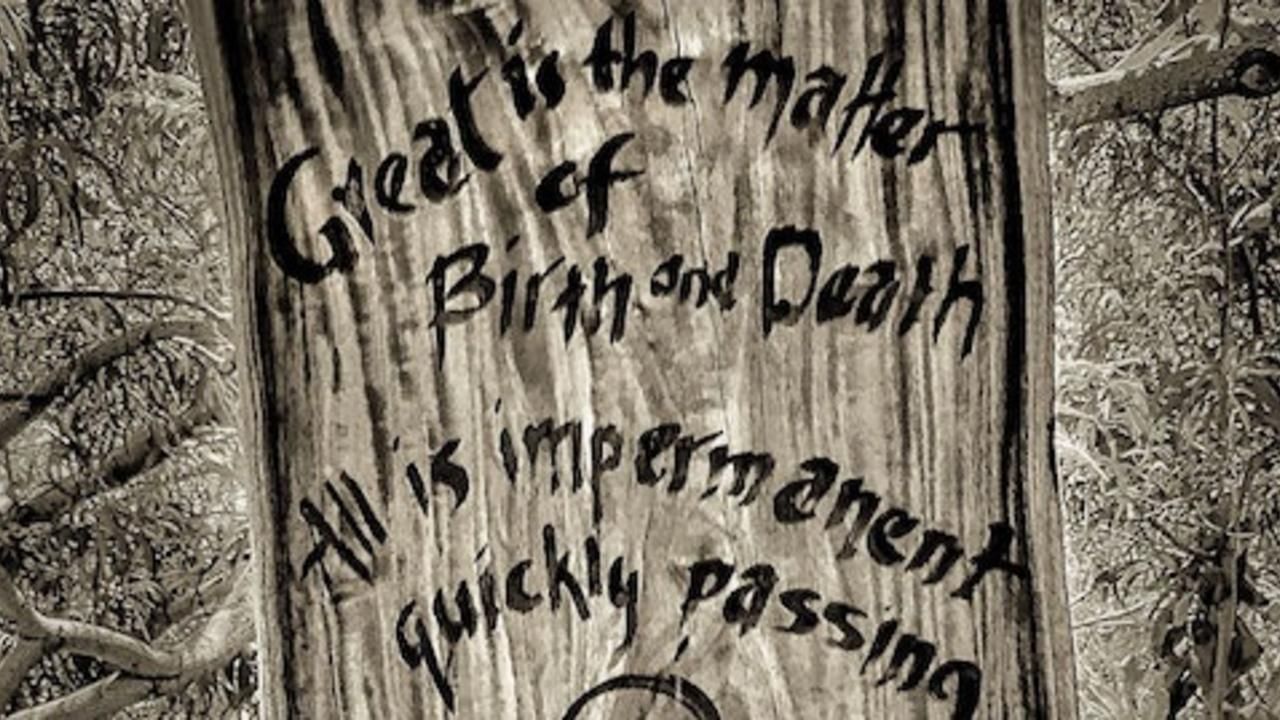 Great is the matter
of
Birth and Death
All is impermanent
quickly passing